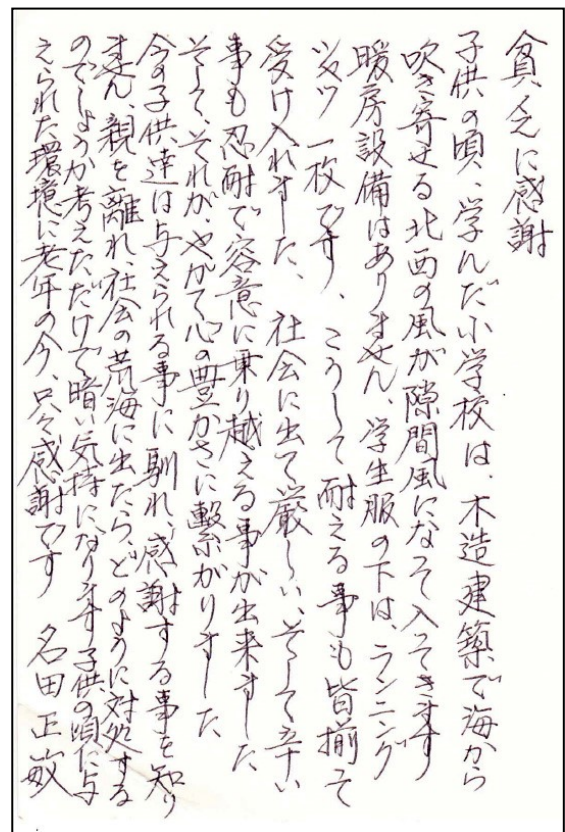 貧乏に感謝
子供の頃、学んだ小学校は、木造建築で海から
吹き寄せる北西の風が隙間風になって入ってきます
暖房設備はありません、学生服の下は、ランニング
シャツ一枚です、こうして耐える事も皆揃って
受け入れました、社会に出て厳しい、そして辛い
事も忍耐で容意に乗り越える事が出来ました
そして、それが、やがて心の豊かさに繫がりました
今の子供達は与えられる事に馴れ、感謝する事を知り
ません、親を離れ、社会の荒海に出たら、どのように対処する
のでしょうか考えただけで暗い気持になります子供の頃に与
えられた環境に老年の今、只々感謝です 名田正敏